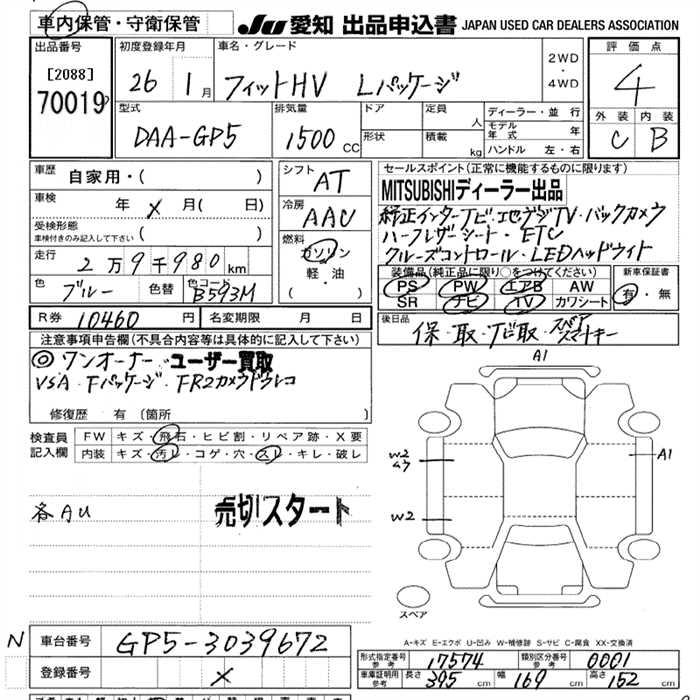 車内保管・守衛保管
JU 愛知 出品申込書 JAPAN USED CAR DEALERS ASSOCIATION
出品番号 初度登録年月 車名・グレード 評価点
[2088]
70019 26 1月 フィットHV Lパッケージ 2WD・4WD 4
外装 内装
C B
型式 排気量 ドア 定員 人 ディーラー・並行
DAA-GP5 1500 CC 形状 積載 kg モデル年式 年
ハンドル 左・右
車歴 自家用・( ) シフト AT
セールスポイント(正常に機能するものに限ります)
MITSUBISHIディーラー出品
車検 年 メ 月( 日) 冷房 AAC
純正インターナビ・フルセグTV・バックカメラ
受検形態
車検付きのみ記入して下さい( )
ハーフレザーシート・ETC
クルーズコントロール・LEDヘッドライト
走行 2万9千980km 燃料 ガソリン 軽・油 ( )
色 ブルー 色替 色コード B593M
装備品(純正品に限り○をつけてください) 新車保証書
PS PW エアB AW 有・無
SR ナビ TV カワシート
R券 10460円 名変期限 月 日
後日品 保・取・ナビ取・スペアスマートキー
注意事項申告欄(不具合内容等は具体的に記入して下さい)
◎ワンオーナー ユーザー買取
VSA・Fパッケージ・FR2カメラドラレコ
修復歴 有(箇所 )
検査員記入欄 FW キズ・飛石・ヒビ割・リペア跡・X要
内装 キズ・汚レ・コゲ・穴・スレ・キレ・破レ
各AU 売切スタート
A1
W2
A1
W2
スペア
A-キズ E-エクボ U-凹み W-補修跡 S-サビ C-腐食 XX-交換済
N 車台番号 GP5-3039672
登録番号 メ
形式指定番号 参考 17574 類別区分番号 参考 0001
車庫証明用 参考 長さ 395cm 幅 169cm 高さ 152cm